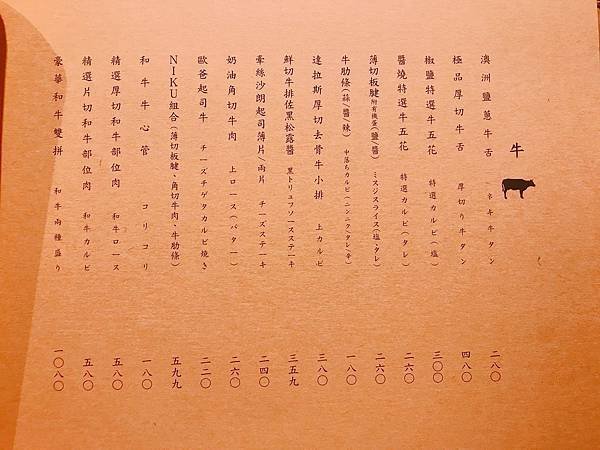 牛
澳洲鹽蔥牛舌 ネギ牛タン 二八〇
極品厚切牛舌 厚切り牛タン 四八〇
椒鹽特選牛五花 特選カルビ(塩) 三〇〇
醬燒特選牛五花 特選カルビ(タレ) 二六〇
薄切板腱 附有機蛋(鹽/醬) ミスジスライス(塩・タレ) 二六〇
牛肋條(蒜/醬/辣) 中落ちカルビ(ニンニク/タレ/辛) 一八〇
達拉斯厚切去骨牛小排 上カルビ 三八〇
鮮切牛排佐黑松露醬 黒トリュフソースステーキ 三五九
牽絲沙朗起司薄片/兩片 チーズステーキ 二四〇
奶油角切牛肉 上ロース(バター) 二六〇
歐爸起司牛 チーズチゲタカルビ焼き 二二〇
NIKU組合(薄切板腱、角切牛肉、牛肋條) 五九九
和牛牛心管 コリコリ 一八〇
精選厚切和牛部位肉 和牛ロース 五八〇
精選片切和牛部位肉 和牛カルビ 五八〇
豪華和牛雙拼 和牛両種盛り 一〇八〇